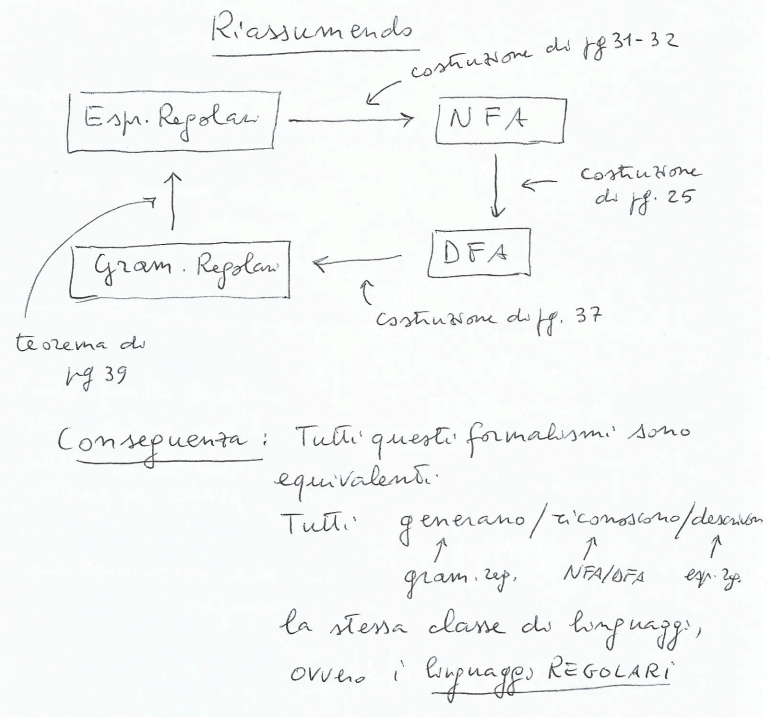 Riassumendo
costruzione di pg 31-32
Espr. Regolari
NFA
costruzione
di pg. 25
Gram. Regolari
DFA
costruzione di pg. 37
teorema di
pg 39
Conseguenza: Tutti questi formalismi sono
equivalenti.
Tutti generano/riconoscono/descrivon
gram. reg. NFA/DFA esp. rg.
la stessa classe di linguaggi,
ovvero i linguaggi REGOLARI